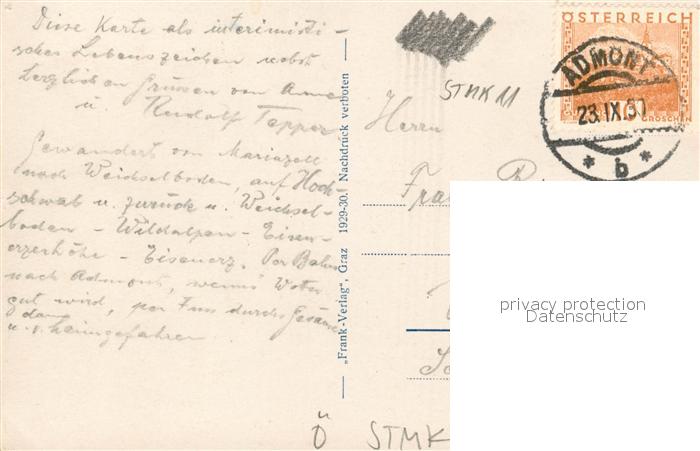 Diese Karte als interimisti-
sches Lebenszeichen nebst
herzlichen Grüssen von Anna
u. Rudolf Tapper
Gewandert von Mariazell
nach Weichselboden, auf Hoch
schwab u. zurück u. Weichsel-
boden - Wildalpen - Eisen-
erzerhöhe - Eisenerz. Per Bahn
nach Admont, wenns Wetter
gut wird, per Fuss durchs Gesäuse
u. dann heimgefahren
„Frank-Verlag“, Graz 1929-30. Nachdruck verboten
STMK 11
ÖSTERREICH
GROSCHEN
ADMONT
23.IX.30
* b *
Herrn
privacy protection
Datenschutz
Ö STMK